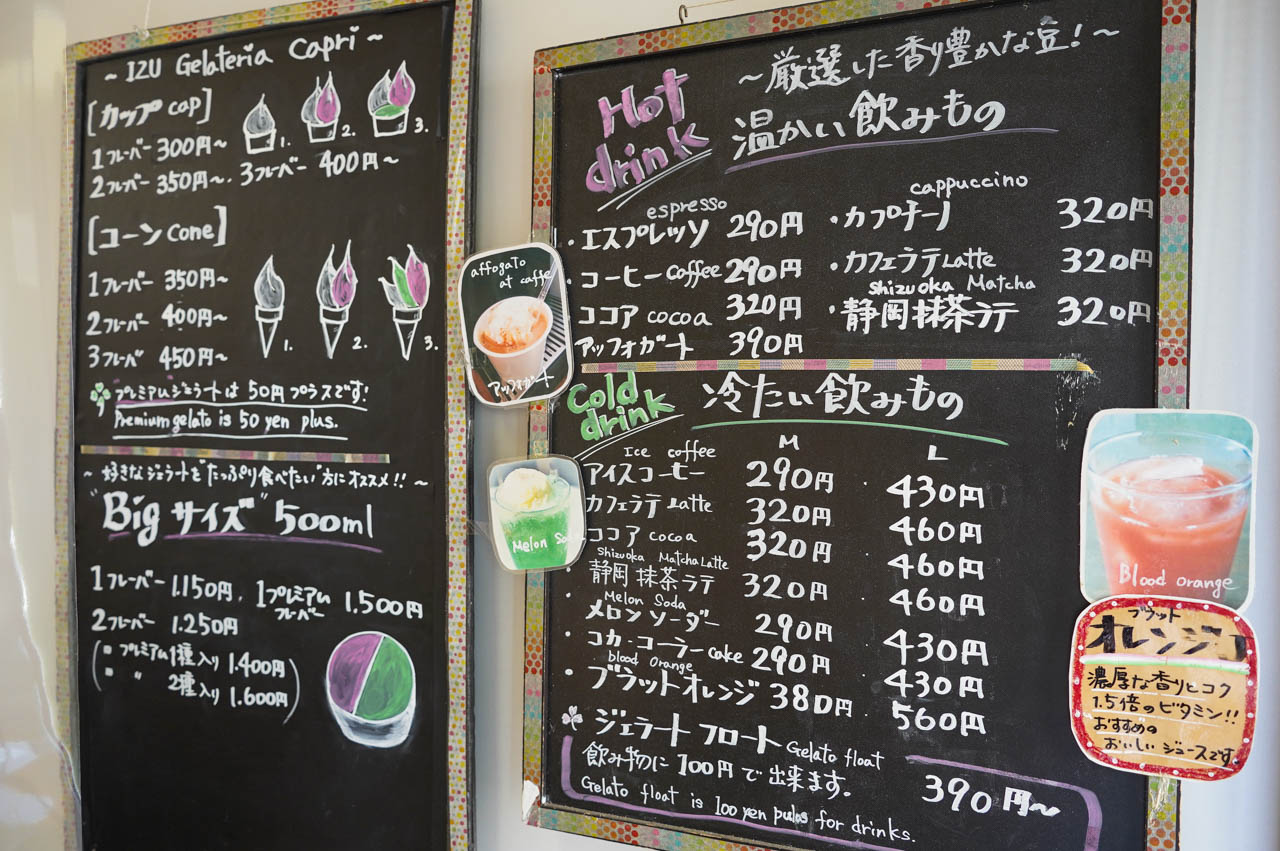 ~ IZU Gelateria Capri ~
[カップ cap]
1フレーバー 300円~
2フレーバー 350円~. 3フレーバー 400円~
1. 2. 3.
[コーン cone]
1フレーバー 350円~
2フレーバー 400円~
3フレーバ 450円~
1. 2. 3.
プレミアムジェラートは 50円プラスです!
Premium gelato is 50 yen plus.
~ 好きなジェラートをたっぷり食べたい方にオススメ!! ~
"Big サイズ" 500ml
1フレーバー 1.150円. 1プレミアムフレーバー 1.500円
2フレーバー 1.250円
(▪ プレミアム1種入り 1.400円
▪ 〃 2種入り 1.600円)
affogato
at caffe
アッフォガート
Melon So
~厳選した香り豊かな豆!~
Hot
drink
温かい飲みもの
espresso
・エスプレッソ 290円
cappuccino
・カプチーノ 320円
・コーヒー coffee 290円
・カフェラテ Latte 320円
・ココア cocoa 320円
Shizuoka Matcha
・静岡抹茶ラテ 320円
アッフォガート 390円
Cold
drink
冷たい飲みもの
M L
Ice coffee
アイスコーヒー 290円 430円
カフェラテ Latte 320円 460円
ココア cocoa 320円 460円
Shizuoka Matcha Latte
・静岡抹茶ラテ 320円 460円
Melon Soda
・メロンソーダー 290円 430円
・コカ・コーラー coke 290円 430円
blood Orange
・ブラットオレンジ 380円 560円
ジェラート フロート Gelato float
飲み物に100円で出来ます。 390円~
Gelato float is 100 yen pulas for drinks.
Blood orange
ブラット
オレンジ
濃厚な香りとコク
1.5倍のビタミン!!
おすすめの
おいしいジュースです。